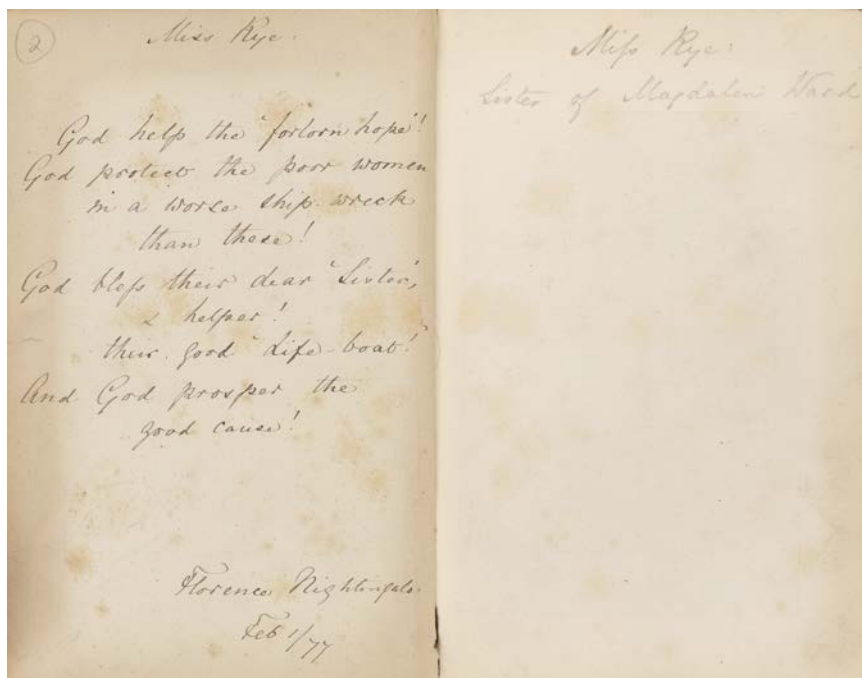 2
Miss Rye.
God help the "forlorn hope"!
God protect the poor women
in a worse ship-wreck
than these!
God bless their dear 'Sister',
& helper!
their good "Life-boat"!
And God prosper the
good cause!
Florence Nightingale
Feb 1/77
Miss Rye:
Sister of Magdalen Ward